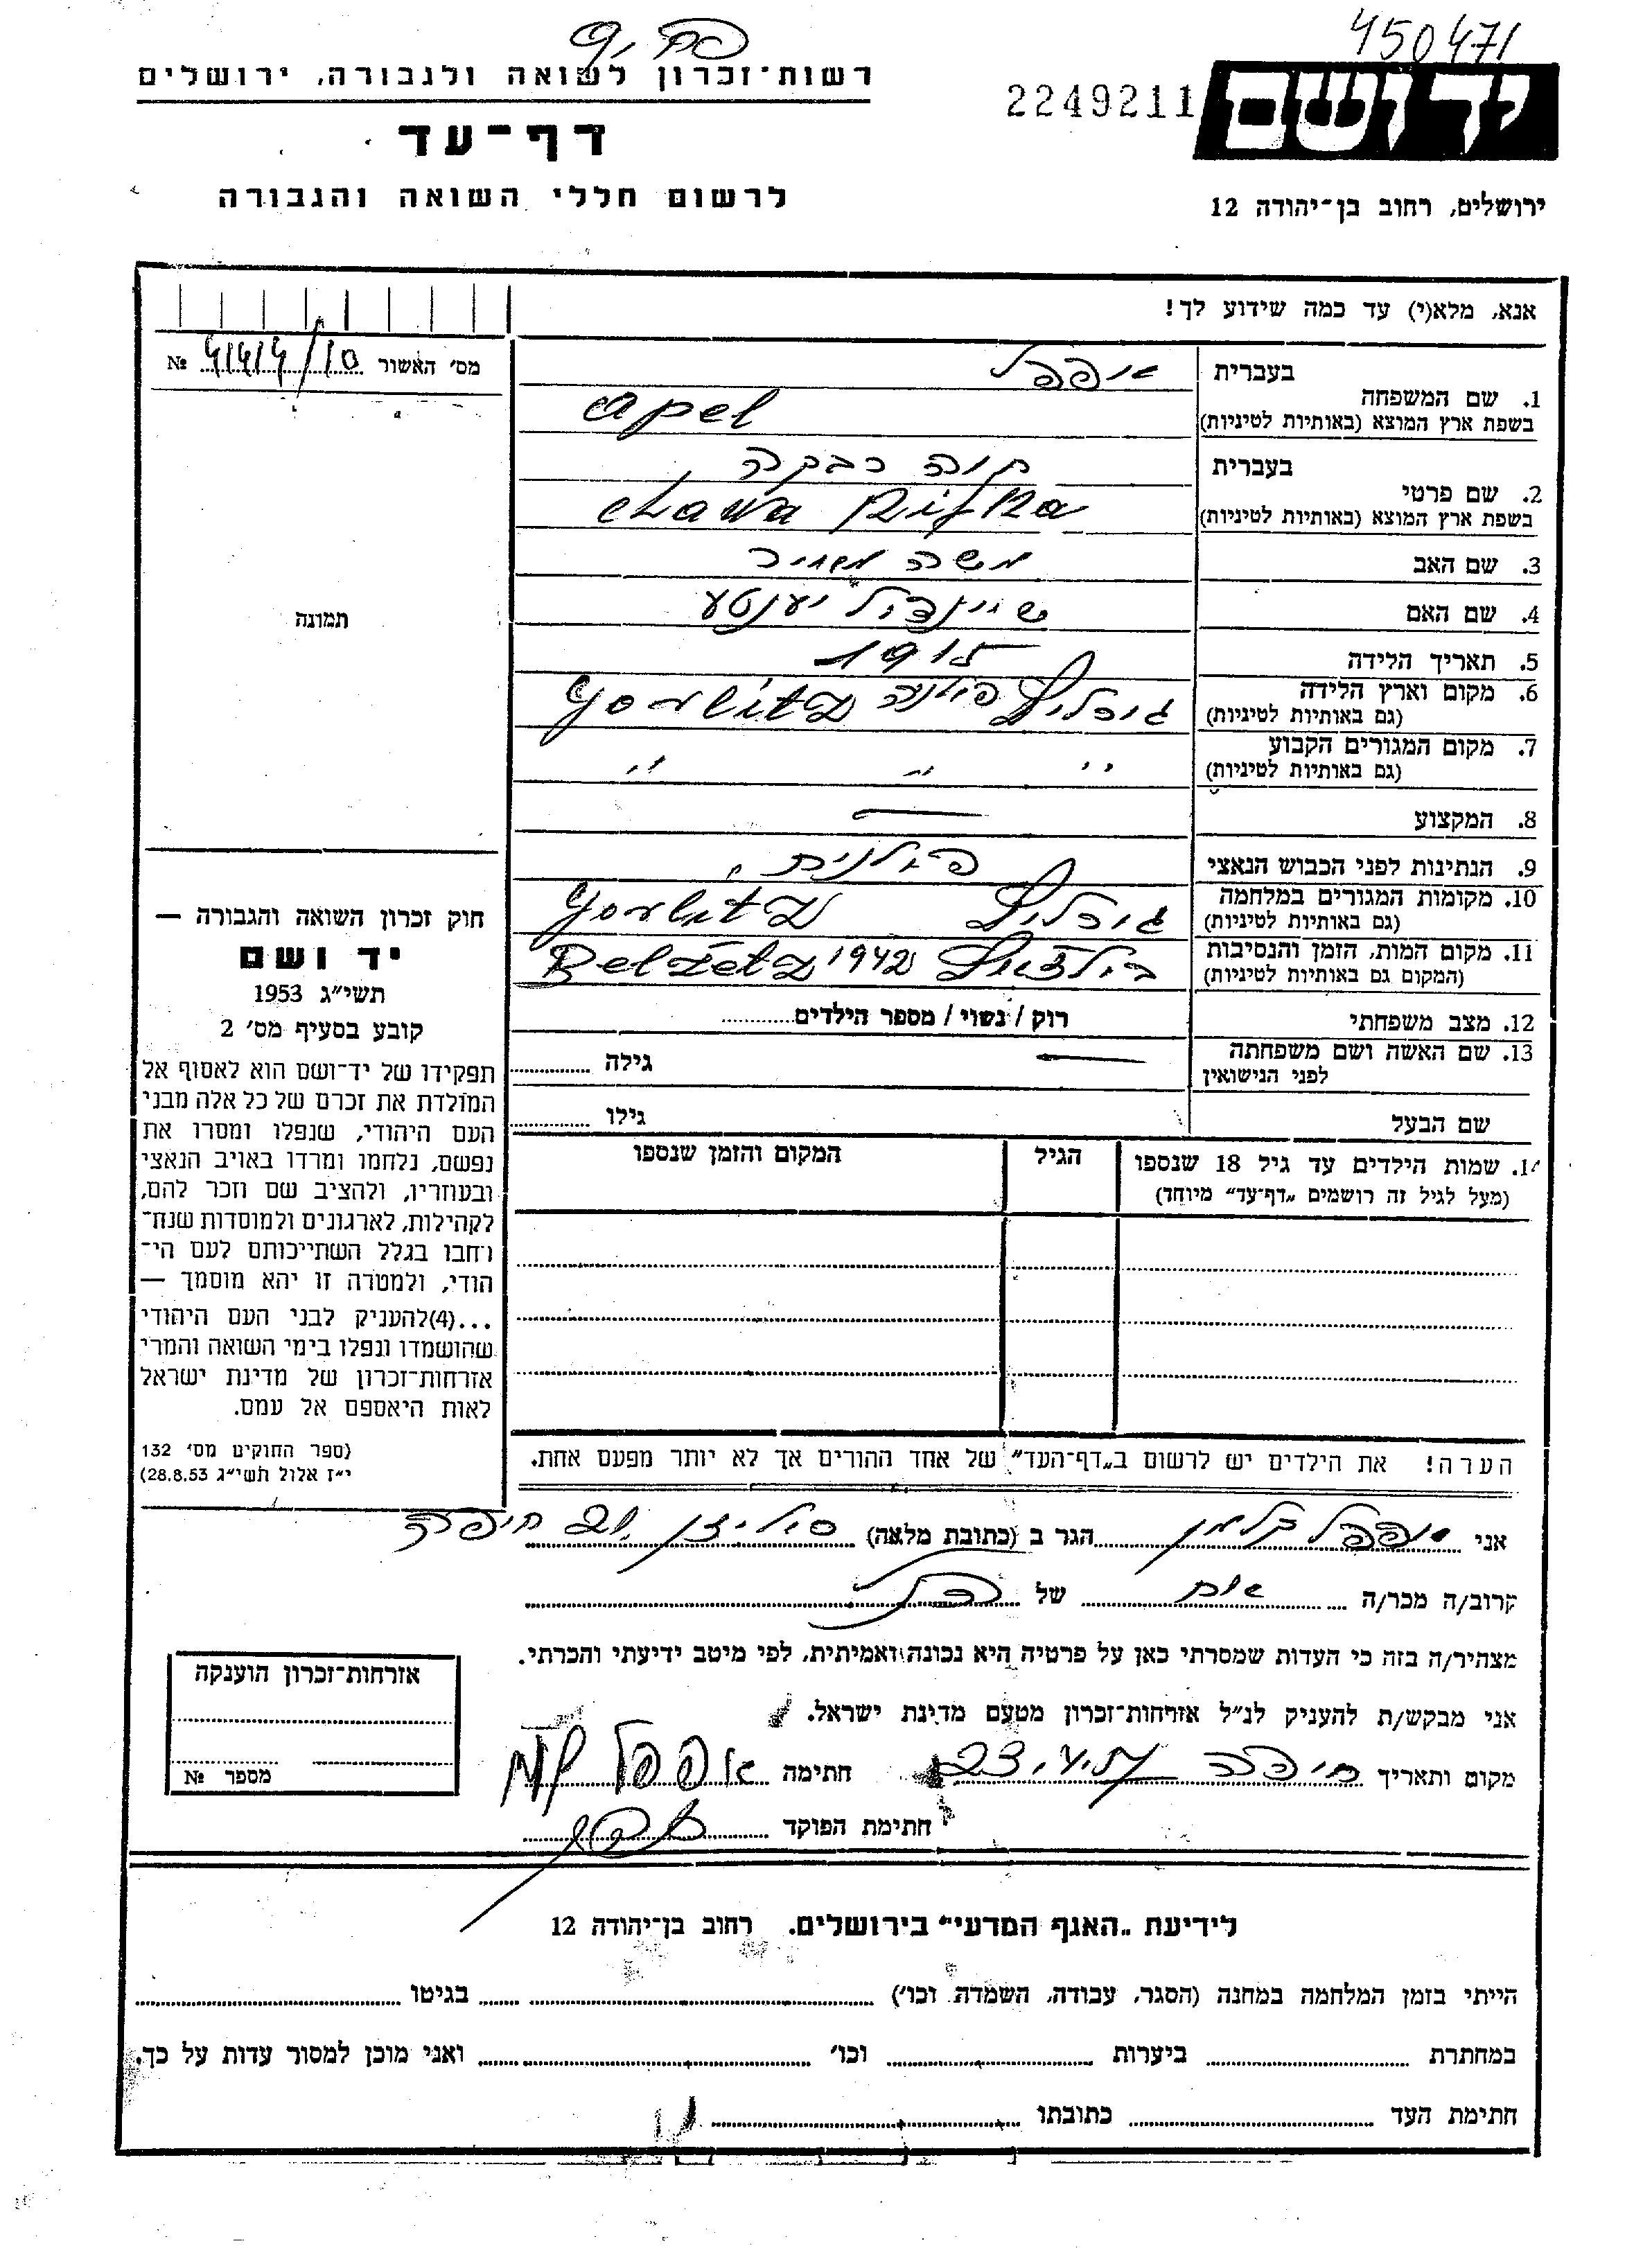 450471
רשות־זכרון לשואה ולגבורה, ירושלים
2249211
יד ושם
דף־עד
לרשום חללי השואה והגבורה
ירושלים, רחוב בן־יהודה 12
אנא, מלא(י) עד כמה שידוע לך!
מס׳ האשור 4144/10 №
בעברית אפפל
1. שם המשפחה
בשפת ארץ המוצא (באותיות לטיניות) Apel
בעברית חוה רבקה
2. שם פרטי
בשפת ארץ המוצא (באותיות לטיניות) Chawa Rifka
3. שם האב משה מאיר
4. שם האם שיינדל יענטע
5. תאריך הלידה 1915
6. מקום וארץ הלידה
(גם באותיות לטיניות) גורליץ פולניה Gorlitz
7. מקום המגורים הקבוע
(גם באותיות לטיניות) " " "
8. המקצוע —
9. הנתינות לפני הכבוש הנאצי פולנית
10. מקומות המגורים במלחמה
(גם באותיות לטיניות) גורליץ Gorlitz
11. מקום המות, הזמן והנסיבות
(המקום גם באותיות לטיניות) בילזיץ 1942 Belzetz
12. מצב משפחתי רוק / נשוי / מספר הילדים
13. שם האשה ושם משפחתה — גילה
לפני הנישואין
שם הבעל גילו
14. שמות הילדים עד גיל 18 שנספו הגיל המקום והזמן שנספו
(מעל לגיל זה רושמים „דף־עד" מיוחד)
הערה! את הילדים יש לרשום ב„דף־העד" של אחד ההורים אך לא יותר מפעם אחת.
תמונה
חוק זכרון השואה והגבורה —
יד ושם
תשי״ג 1953
קובע בסעיף מס׳ 2
תפקידו של יד־ושם הוא לאסוף אל
המולדת את זכרם של כל אלה מבני
העם היהודי, שנפלו ומסרו את
נפשם, נלחמו ומרדו באויב הנאצי
ובעוזריו, ולהציב שם וזכר להם,
לקהילות, לארגונים ולמוסדות שנח־
רחבו בגלל השתייכותם לעם הי־
הודי, ולמטרה זו יהא מוסמך —
...(4)להעניק לבני העם היהודי
שהושמדו ונפלו בימי השואה והמרי
אזרחות־זכרון של מדינת ישראל
לאות היאספם אל עמם.
(ספר החוקים מס׳ 132
י״ז אלול תשי״ג 28.8.53)
אני אפפל קלמן הגר ב (כתובת מלאה) חיפה
קרוב/ה מכר/ה אח של הנ״ל
מצהיר/ה בזה כי העדות שמסרתי כאן על פרטיה היא נכונה ואמיתית, לפי מיטב ידיעתי והכרתי.
אני מבקש/ת להעניק לנ״ל אזרחות־זכרון מטעם מדינת ישראל.
מקום ותאריך חיפה 23. חתימה אפפל
חתימת הפוקד
אזרחות־זכרון הוענקה
מספר №
לידיעת „האגף המדעי" בירושלים. רחוב בן־יהודה 12
הייתי בזמן המלחמה במחנה (הסגר, עבודה, השמדה וכו׳) בגיטו
במחתרת ביערות וכו׳ ואני מוכן למסור עדות על כך.
חתימת העד כתובתו